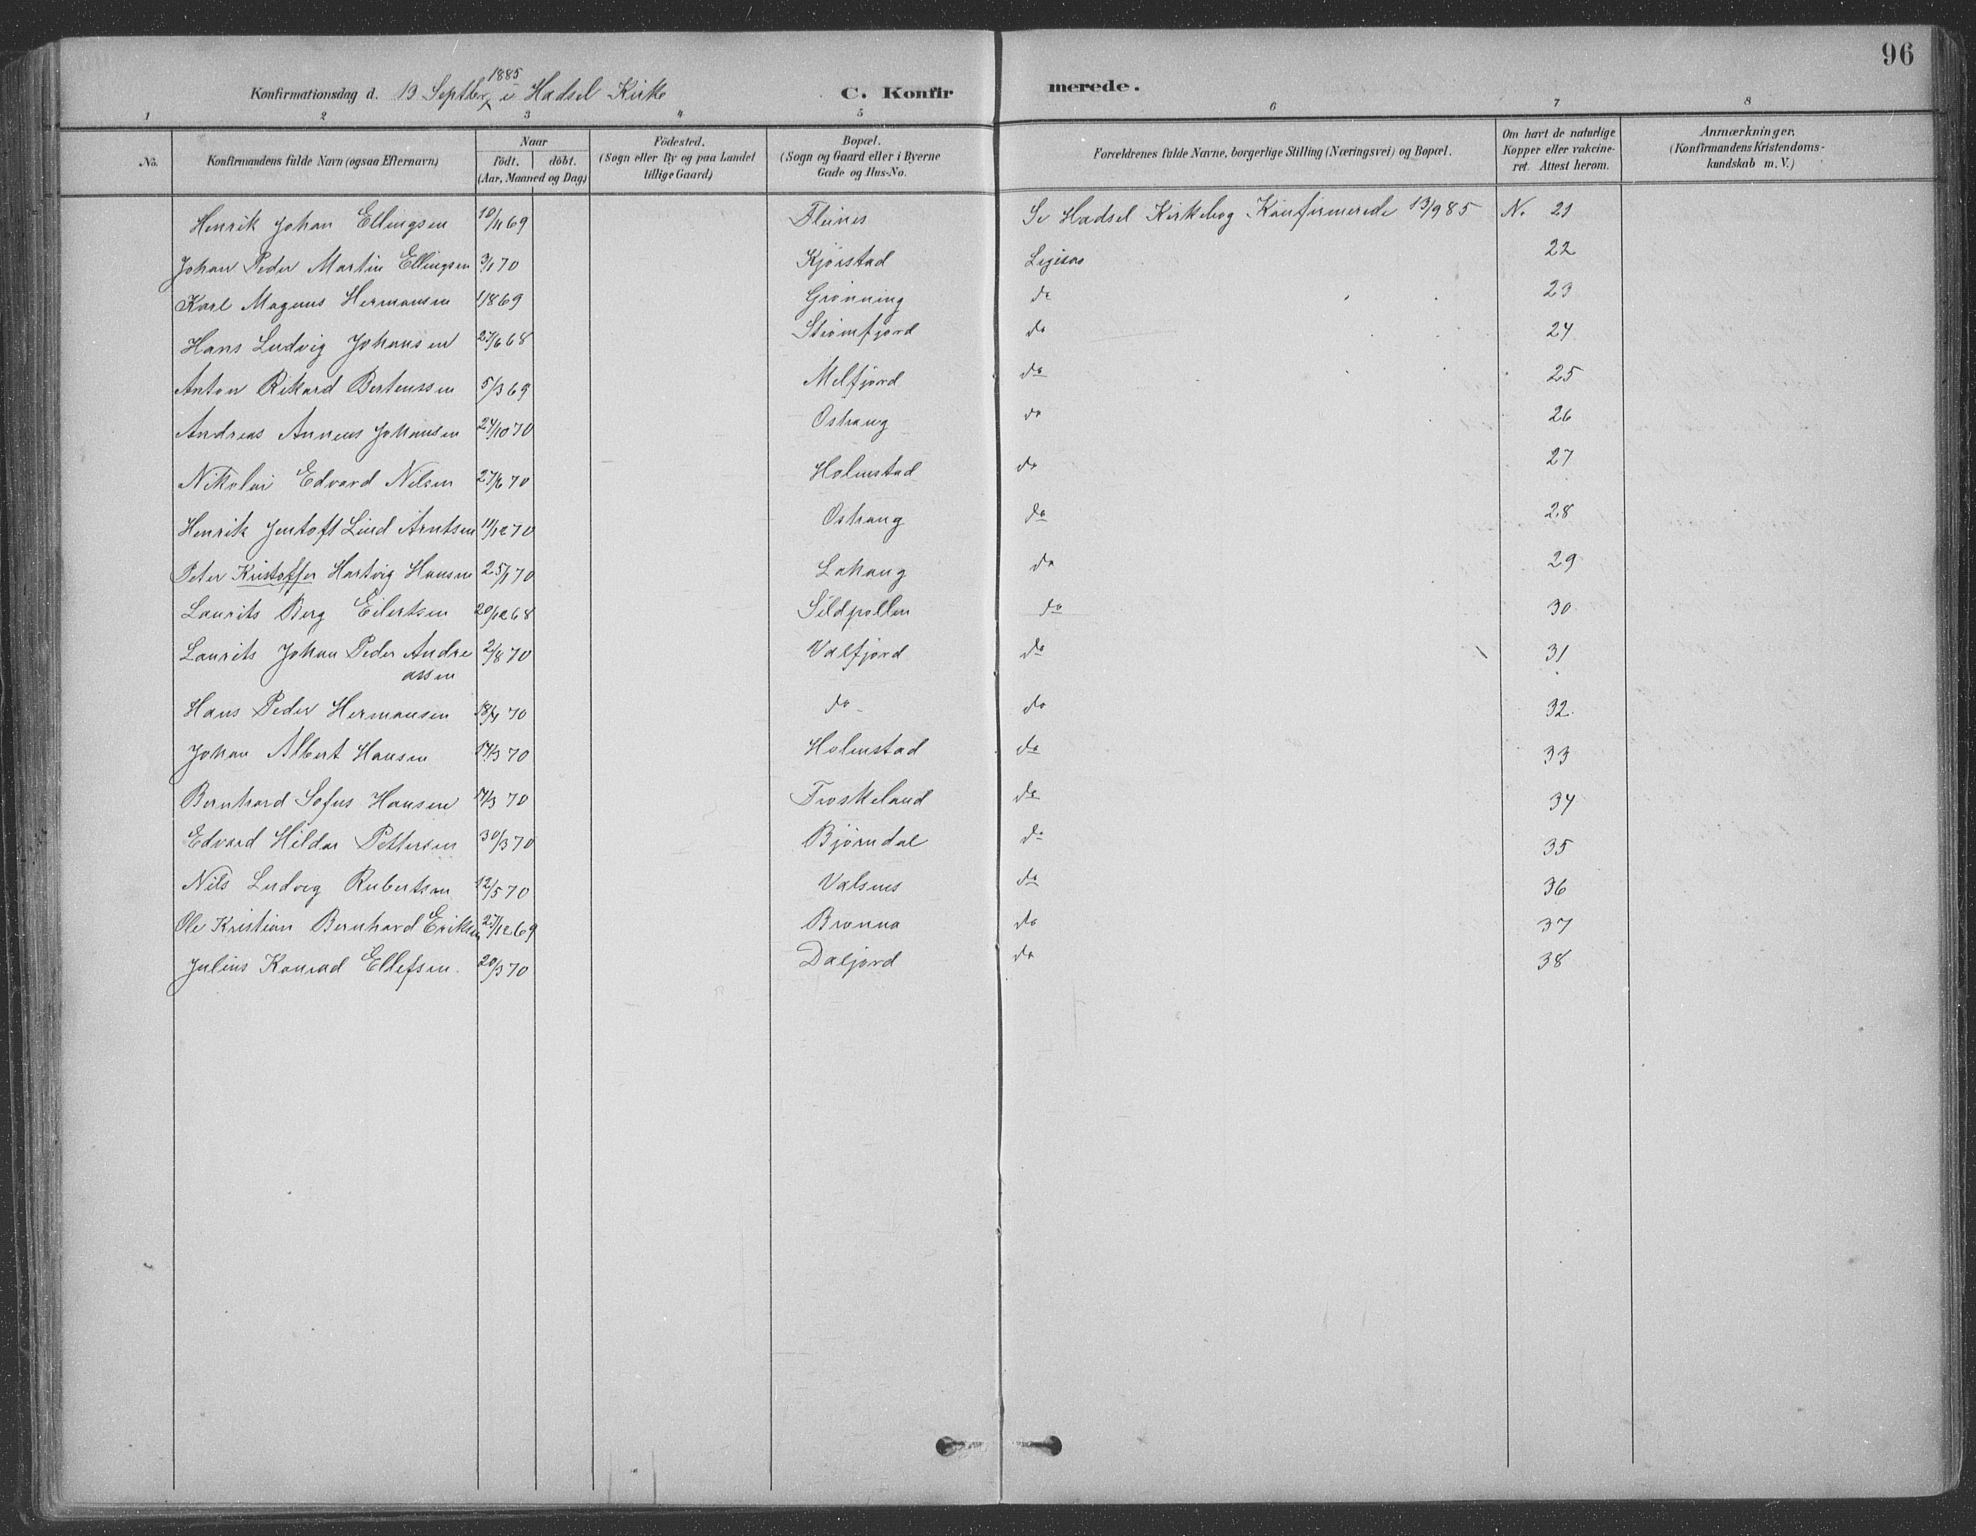 96
1885
Konfirmationsdag d. 13 Septber i Hadsel Kirke C. Konfir merede.
1 2 3 4 5 6 7 8
No. Konfirmandens fulde Navn (ogsaa Efternavn) Naar Födested. Bopæl. Forældrenes fulde Navne, borgerlige Stilling (Næringsvei) og Bopæl. Om havt de naturlige Anmærkninger.
födt. döbt. (Sogn eller By og paa Landet (Sogn og Gaard eller i Byerne Kopper eller vakcine- (Konfirmandens Kristendoms-
(Aar, Maaned og Dag) tillige Gaard) Gade og Hus-No. ret. Attest herom. kundskab m. V.)
Henrik Johan Ellingsen 10/11 69 Fleines Se Hadsel Kirkebog Konfirmerede 13/9 85 N. 21
Johan Peder Martin Ellingsen 3/1 70 Kjørstad Ligesaa 22
Karl Magnus Hermansen 1869 Grønning do 23
Hans Ludvig Johansen 27/6 68 Strømfjord do 24
Anton Rikard Bertenssen 5/3 69 Melfjord do 25
Andreas Anneus Johansen 24/10 70 Oshaug do 26
Nikolai Edvard Nilsen 27/6 70 Holmstad do 27
Henrik Jentoft Lind Arntsen 11/12 70 Oshaug do 28
Peter Kristoffer Hartvig Hansen 25/1 70 Lahaug do 29
Laurits Berg Eilertsen 20/12 68 Sildpollen do 30
Laurits Johan Peder Andre 2/8 70 Valfjord do 31
assen
Hans Peder Hermansen 18/4 70 do do 32
Johan Albert Hansen 17/3 70 Holmstad do 33
Bernhard Sofus Hansen 17/3 70 Froskeland do 34
Edvard Hildor Pettersen 30/3 70 Bjørndal do 35
Nils Ludvig Rubertsen 12/5 70 Valsnes do 36
Ole Kristian Bernhard Eriksen 27/12 69 Brønna do 37
Julius Konrad Ellefsen 20/3 70 Daljord do 38